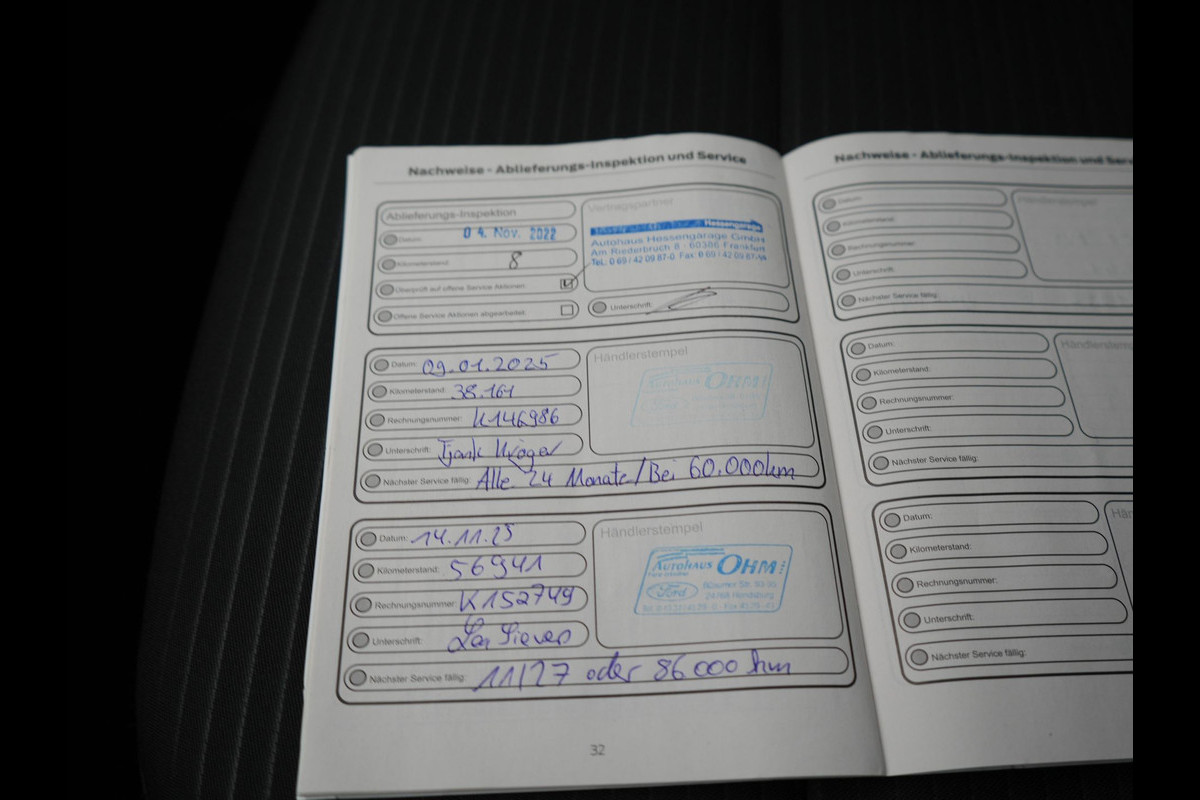 Nachweise - Ablieferungs-Inspektion und Service
Ablieferungs-Inspektion
Datum: 04. Nov. 2022
Kilometerstand: 8
Überprüft auf offene Service Aktionen:
Offene Service Aktionen abgearbeitet:
Vertragspartner
Hessengarage
Autohaus Hessengarage GmbH
Am Riederbruch 8 - 60386 Frankfurt
Tel.: 0 69 / 42 09 87-0 Fax: 0 69 / 42 09 87-
Unterschrift:
Datum: 09.01.2025
Kilometerstand: 38.161
Rechnungsnummer: K146986
Unterschrift:
Nächster Service fällig: Alle 24 Monate/Bei 60.000km
Händlerstempel
AUTOHAUS OHM
Datum: 14.11.25
Kilometerstand: 56941
Rechnungsnummer: K152749
Unterschrift:
Nächster Service fällig: 11/27 oder 86000 km
Händlerstempel
AUTOHAUS OHM
Ford
Rendsburg
32
Nachweise - Ablieferungs-Inspektion und Serv
Datum:
Kilometerstand:
Rechnungsnummer:
Unterschrift:
Nächster Service fällig:
Händlerstempel
Datum:
Kilometerstand:
Rechnungsnummer:
Unterschrift:
Nächster Service fällig:
Händlerstem
Datum:
Kilometerstand:
Rechnungsnummer:
Unterschrift:
Nächster Service fällig:
Hän